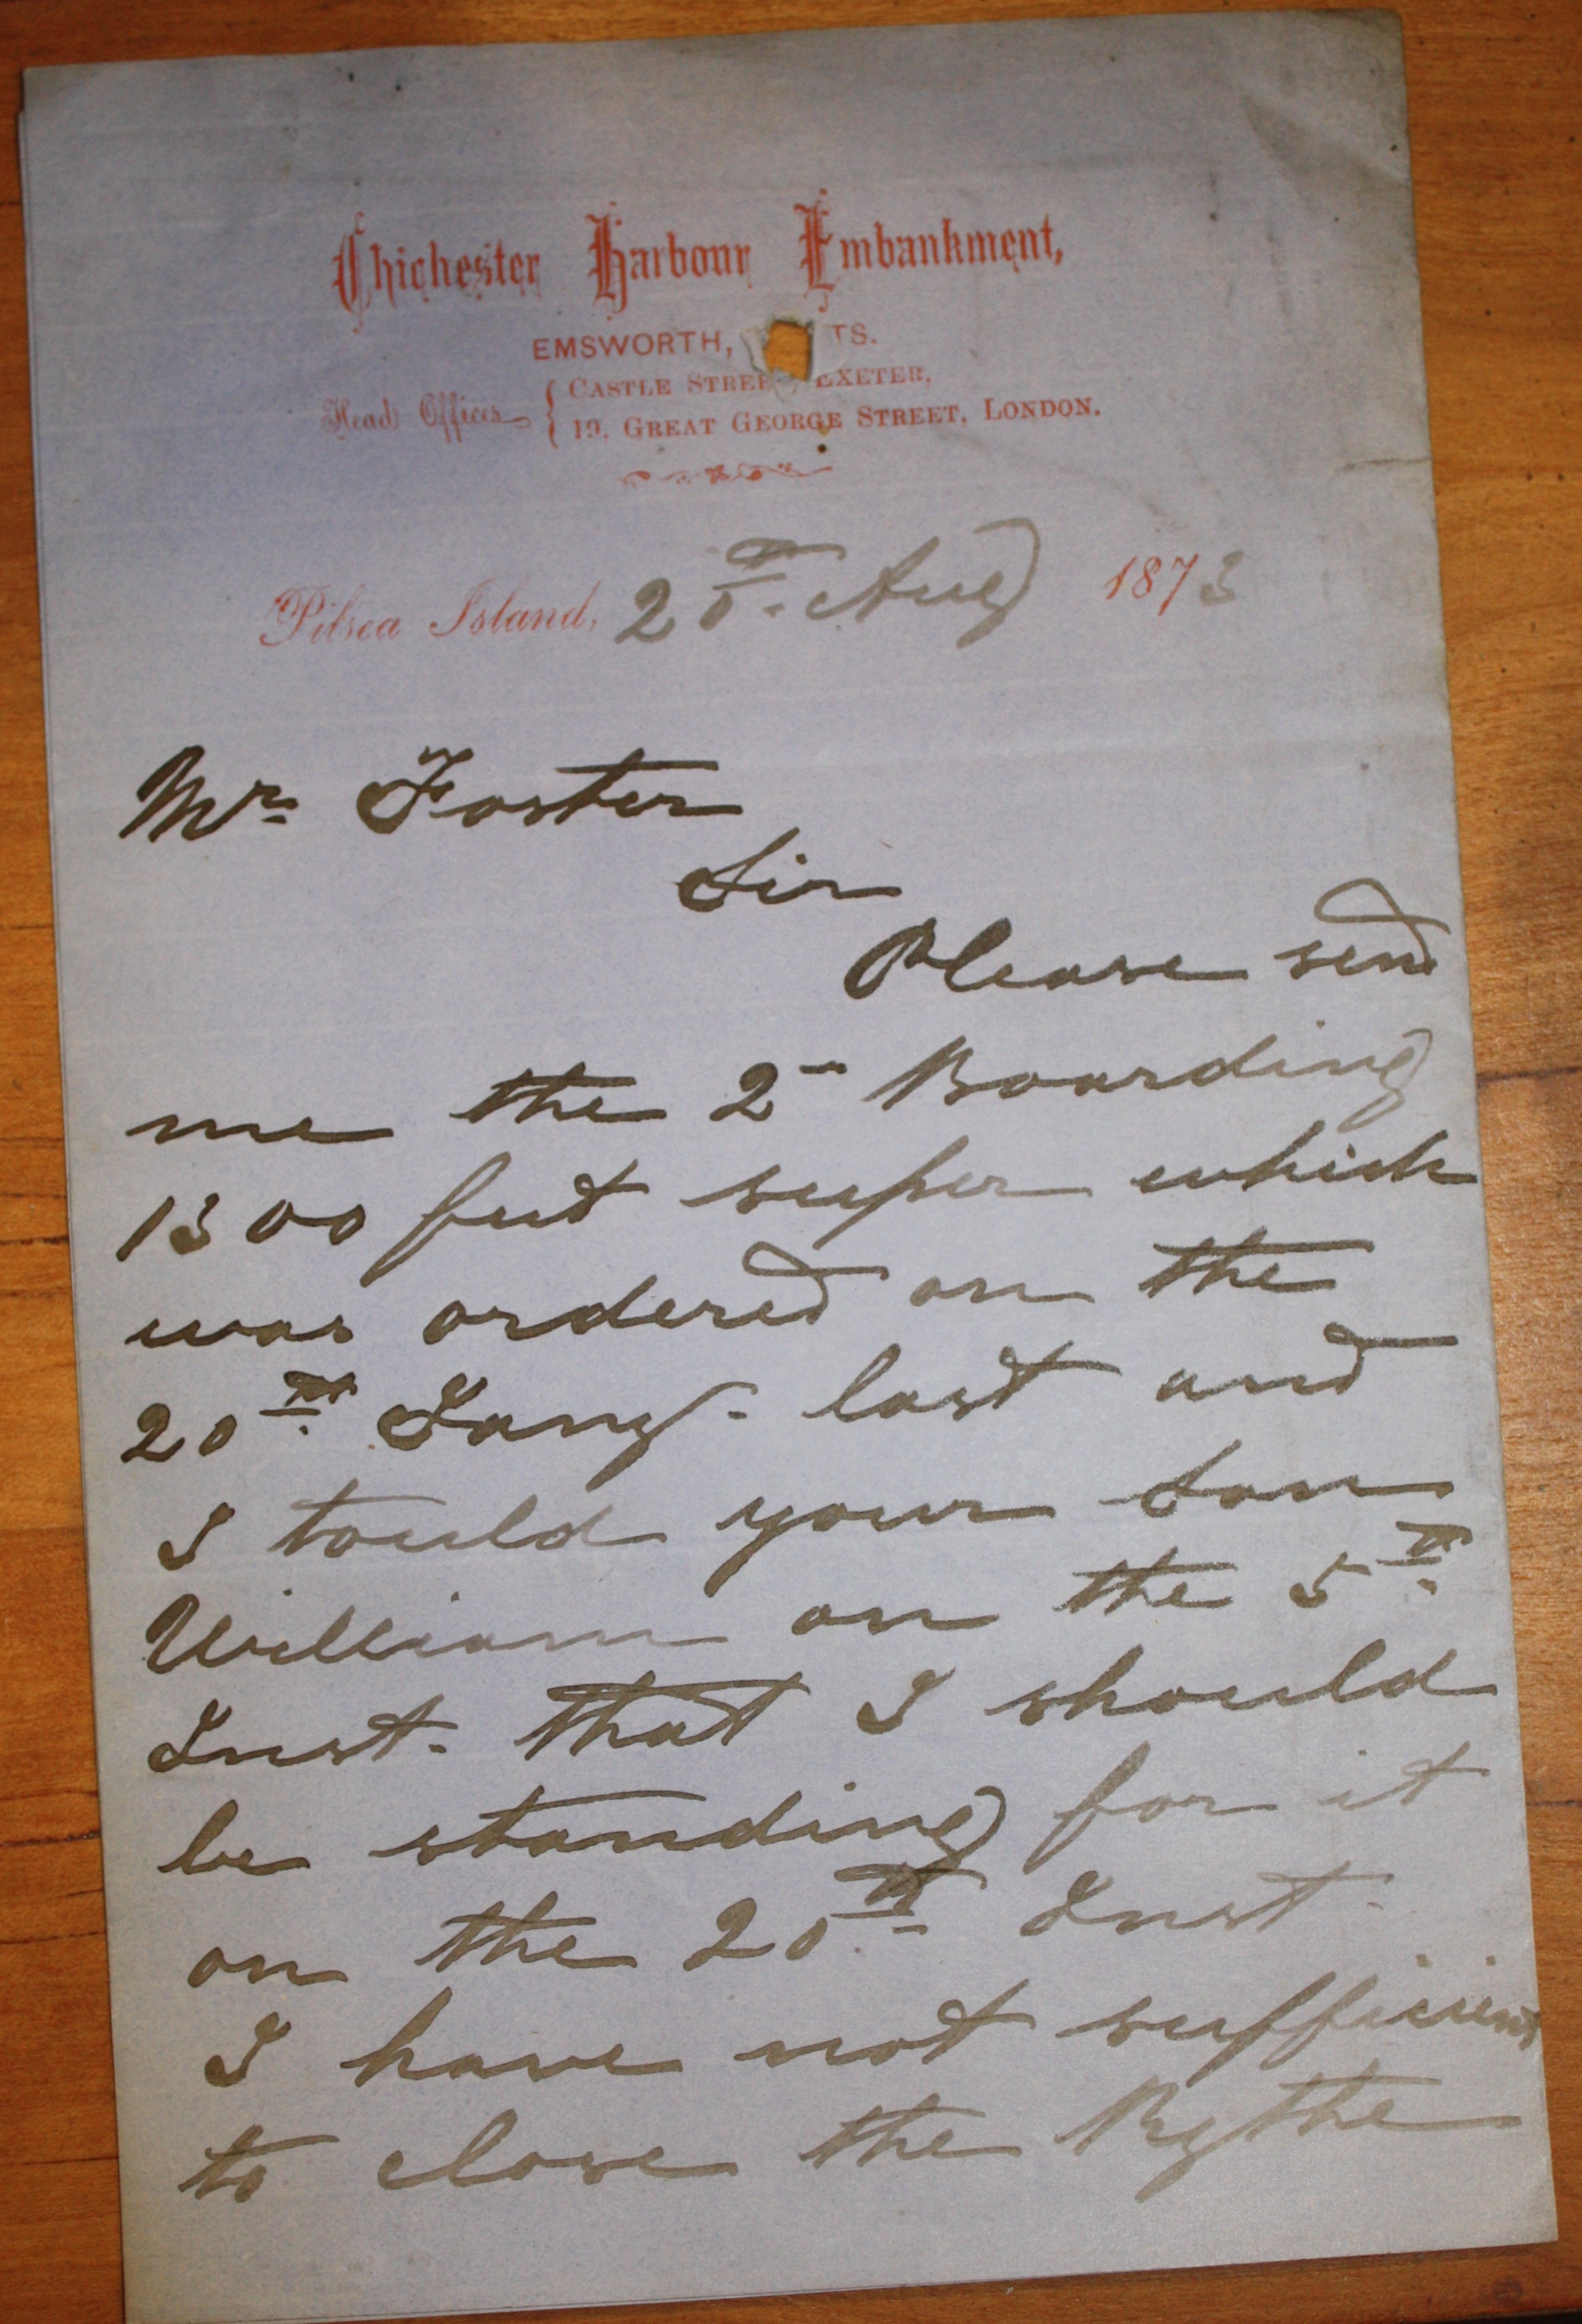 Chichester Harbour Embankment,
EMSWORTH, TS.
Head Offices { CASTLE STREET, EXETER,
19, GREAT GEORGE STREET, LONDON.
Pilsea Island, 20th. Aug 1873
Mr. Foster
Sir
Please send
me the 2" Boarding
1300 feet super which
was ordered on the
20th. Jany. last and
I tould your Son
William on the 5th.
Inst. that I should
be standing for it
on the 20th. Inst.
I have not sufficient
to close the Rythe